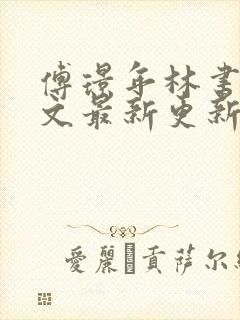 傅璟年林書
文最新更新
愛麗�貢薩尔維